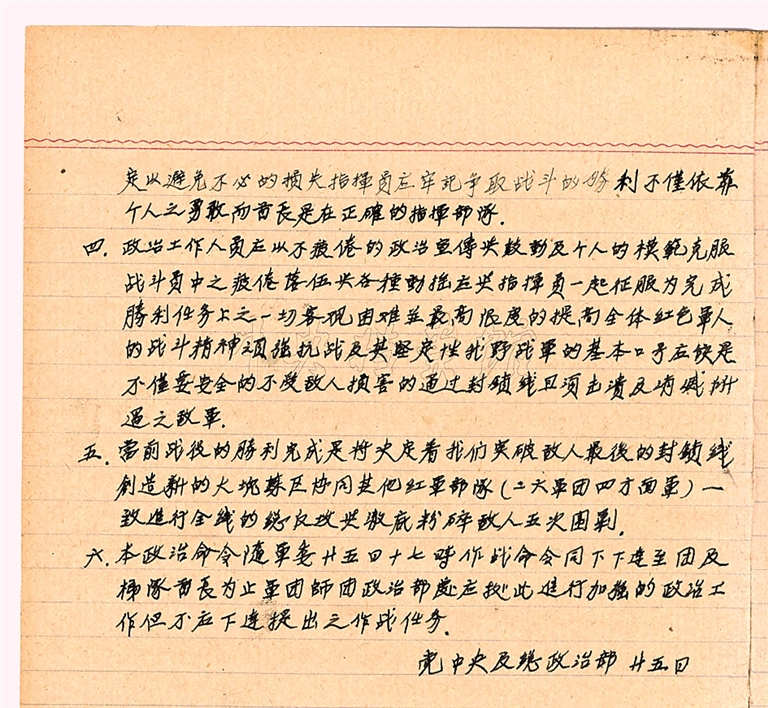 定以避免不必的损失指揮員应牢記争取战斗的勝利不僅依靠
个人之勇敢而首長是在正確的指揮部隊.
四. 政治工作人員应以不疲倦的政治宣傳共鼓動及个人的模範克服
战斗員中之疲倦落伍共各種動摇应共指揮員一起征服为完成
勝利任务上之一切客观困难並最高限度的提高全体红色軍人
的战斗精神顽强抗战及其坚定性我野战軍的基本口号应该是
不僅要安全的不受敌人損害的通过封鎖线且须击潰及消滅所
遇之敌軍.
五. 當前战役的勝利完成是将决定着我们突破敌人最後的封鎖线
創造新的大塊蘇区协同其他红軍部隊(二六軍団四方面軍)一
致進行全线的總反攻共澈底粉碎敌人五次围剿.
六. 本政治命令随軍委廿五日十七時作战命令同下下達至团及
梯隊首長为止軍团師团政治部處应按此進行加强的政治工
作但不应下達提出之作战任务.
党中央及總政治部 廿五日